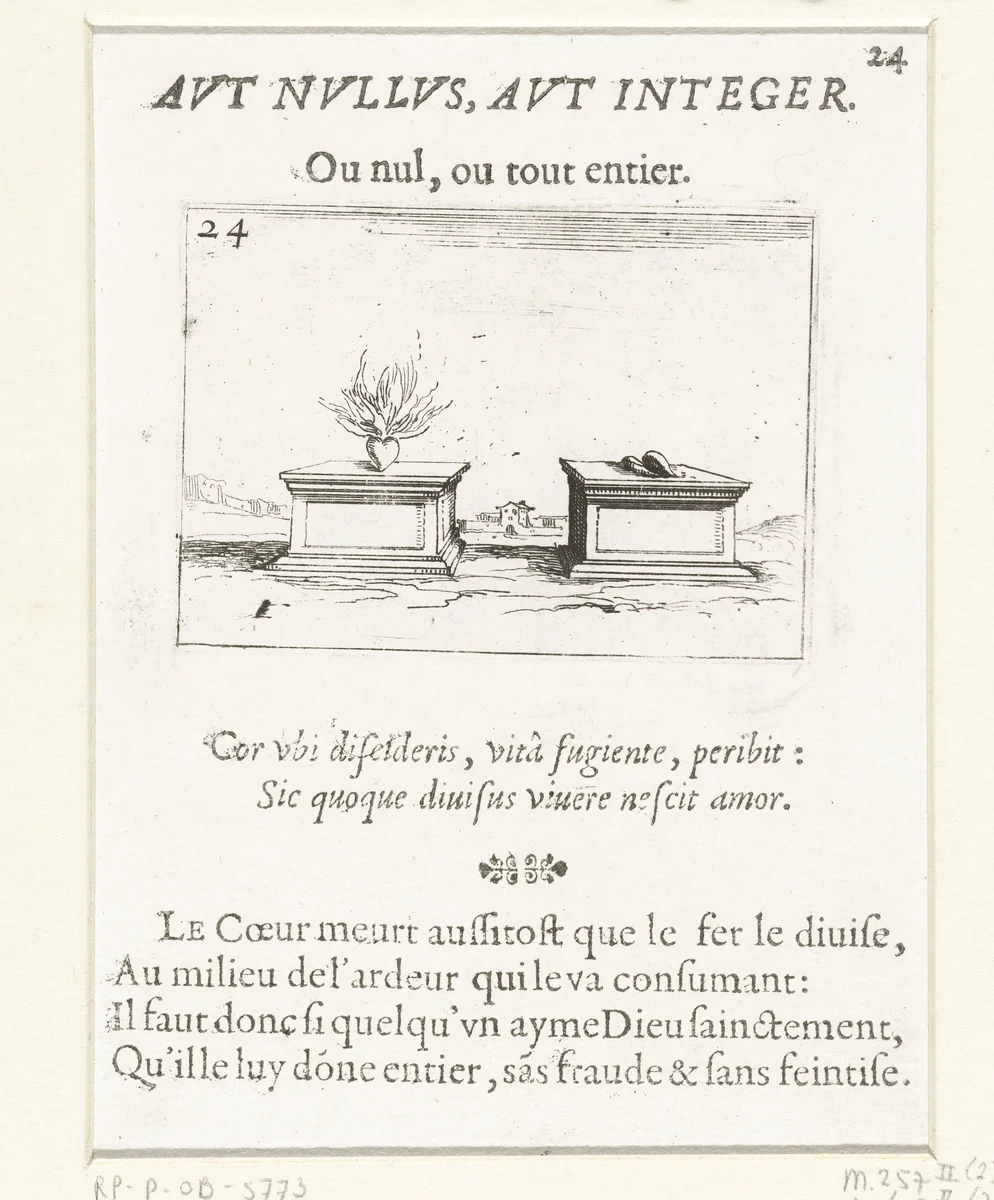 24
AVT NVLLVS, AVT INTEGER.
Ou nul, ou tout entier.
24
Cor vbi diſcideris, vitâ fugiente, peribit :
Sic quoque diuiſus viuere neſcit amor.
LE Cœur meurt auſſitoſt que le fer le diuiſe,
Au milieu de l'ardeur qui le va conſumant:
Il faut donc ſi quelqu'vn ayme Dieu ſainctement,
Qu'il le luy dóne entier, sãs fraude & ſans feintiſe.
RP-P-OB-5773
M.257 II (2)